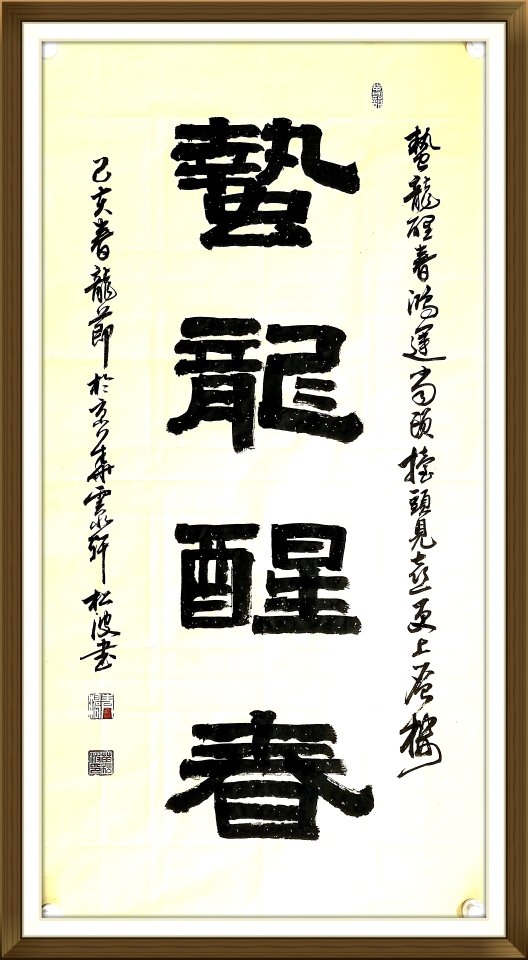 蟄龍醒春鴻運當頭擡頭見喜更上層樓
蟄龍醒春
己亥春龍節於京華雲軒松波書